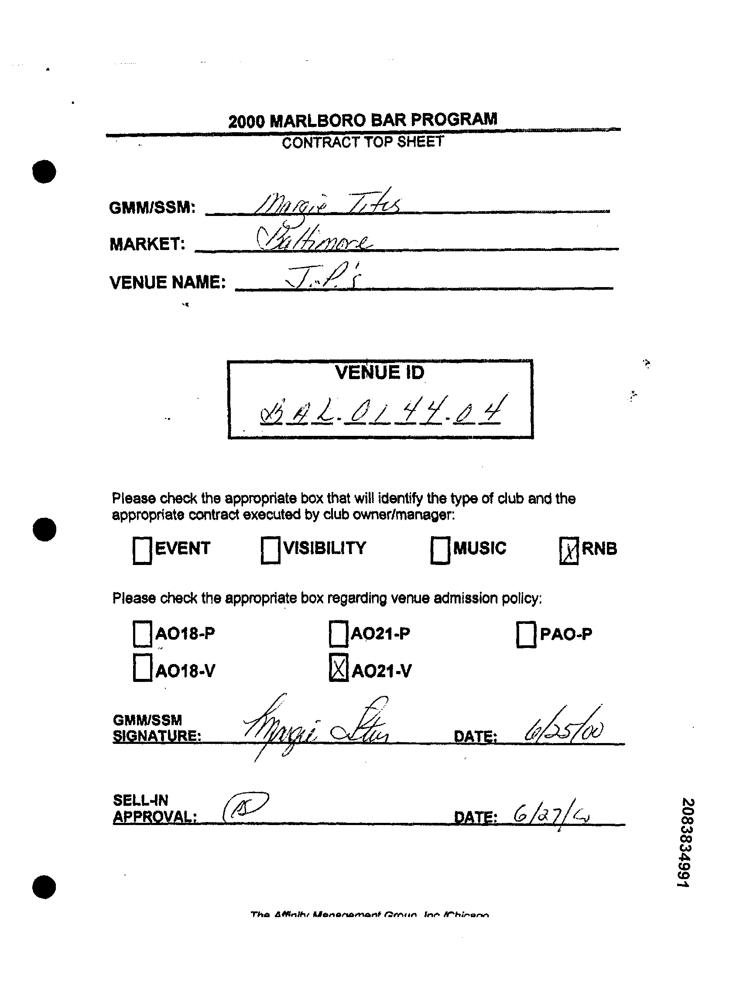 2000 MARLBORO BAR PROGRAM
CONTRACT TOP SHEET
GMM/SSM: Margie Titus
MARKET: Baltimore
VENUE NAME: J.P.'s
VENUE ID
BAL.0144.04
Please check the appropriate box that will identify the type of club and the
appropriate contract executed by club owner/manager:
EVENT VISIBILITY MUSIC X RNB
Please check the appropriate box regarding venue admission policy:
AO18-P AO21-P PAO-P
AO18-V X AO21-V
GMM/SSM
SIGNATURE: Margie Titus DATE: 6/25/00
SELL-IN
APPROVAL: DATE: 6/27/
2083834991
The Affinity Management Group, Inc./Chicago